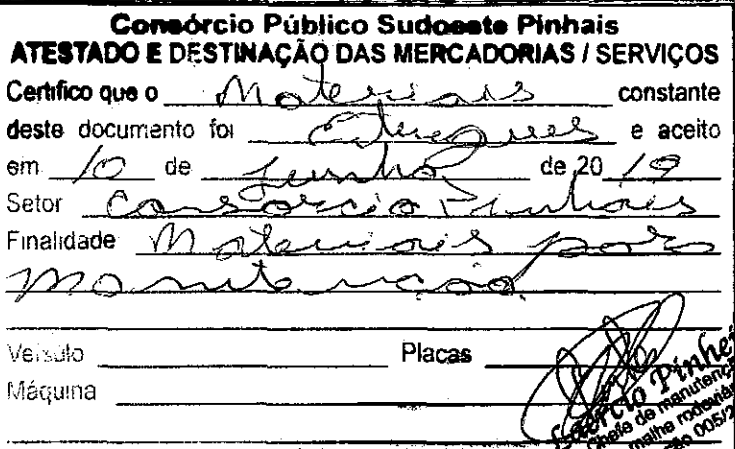 Consórcio Público Sudoeste Pinhais
ATESTADO E DESTINAÇÃO DAS MERCADORIAS / SERVIÇOS
Certifico que o Materiais constante
deste documento foi Entregues e aceito
em 10 de Junho de 20 19
Setor Consorcio Pinhais
Finalidade Materiais para
manutenção
Veículo Placas
Máquina
Pinhei
Chefe de manutençã
malha rodoviár
005/2